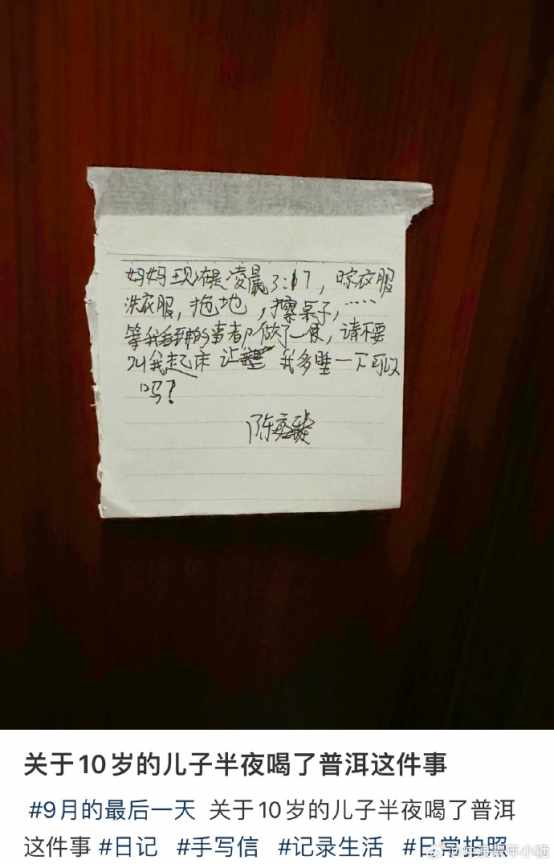 妈妈现在是凌晨3:17，晾衣服
洗衣服，拖地，擦桌子，……
等我能干的事都做了一便，请不要
叫我起床 让 我多睡一下可以
吗？
陈
关于10岁的儿子半夜喝了普洱这件事
#9月的最后一天 关于10岁的儿子半夜喝了普洱
这件事 #日记 #手写信 #记录生活 #日常拍照